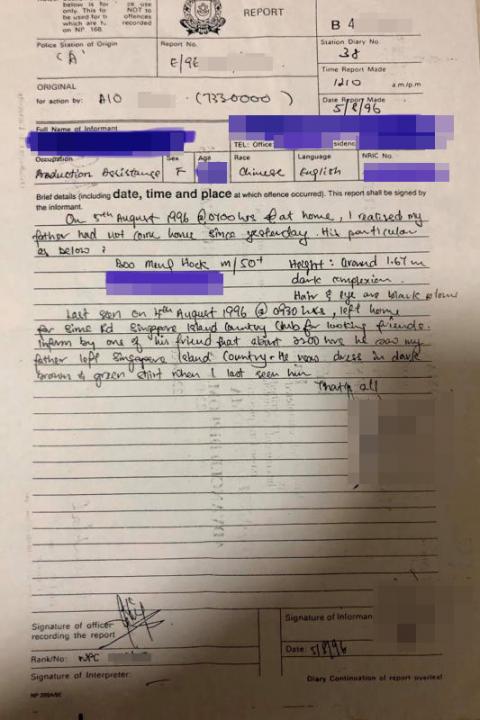 REPORT
B 4
only.
NOT to
be used
offences
which are
recorded
on NP 168.
Police Station of Origin
Report No.
Station Diary No.
'A'
E/96
38
Time Report Made
1210 a.m/p.m
ORIGINAL
for action by: AIO (733-0000)
Date Report Made
5/8/96
Full Name of Informant
TEL: Office:
Occupation Sex Age Race Language NRIC No.
Production Assistance F Chinese English
Brief details (including date, time and place at which offence occurred). This report shall be signed by
the informant.
On 5th August 1996 @ 0700 hrs at home, I realised my
father had not come home since yesterday. His particular
as below:
Boo Meng Hock m/50+ Height: around 1.67m
dark complexion
Hair & eye are black
Last seen on 4th August 1996 @ 0930 hrs, left home
for Sime Rd Singapore Island Country Club for looking friends.
Inform by one of his friend that about 0200 hrs he saw my
father left Singapore Island Country. He was dress in dark
brown & green shirt when I last seen him.
That's all
Signature of officer
recording the report
Signature of Informan
Rank/No: NPC
Date: 5/8/96
Signature of Interpreter:
Diary Continuation of report overleaf